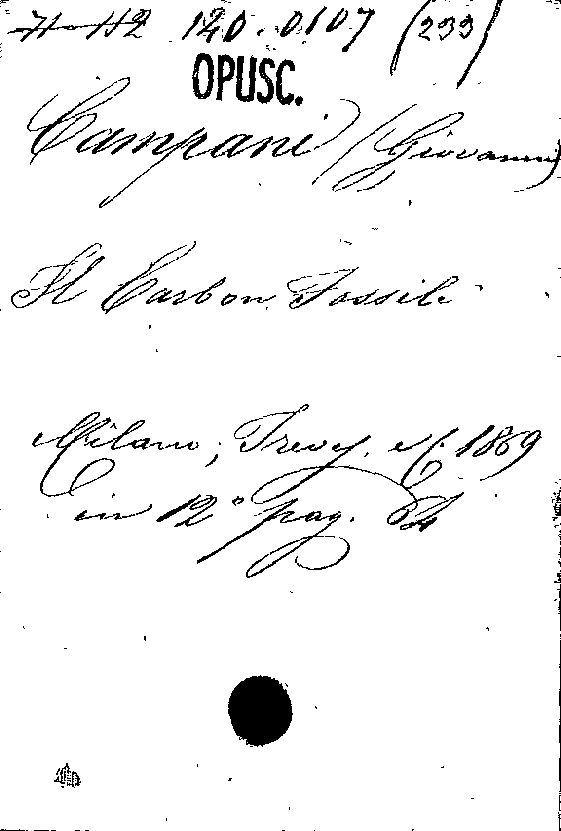 120.0107 (233)
OPUSC.
Campani (Giovanni)
Il Carbon Fossile
Milano, Treves, 1869
in 12° pag.